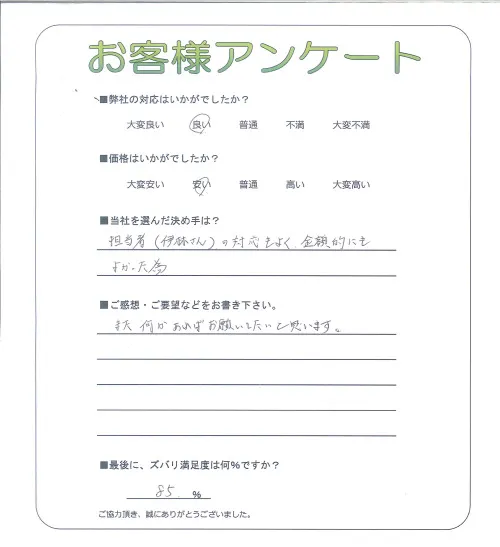 お客様アンケート
■弊社の対応はいかがでしたか？
大変良い 良い 普通 不満 大変不満
■価格はいかがでしたか？
大変安い 安い 普通 高い 大変高い
■当社を選んだ決め手は？
担当者(伊林さん)の対応もよく、金額的にも
よかった為
■ご感想・ご要望などをお書き下さい。
また何かあればお願いしたいと思います。
■最後に、ズバリ満足度は何%ですか？
85 %
ご協力頂き、誠にありがとうございました。